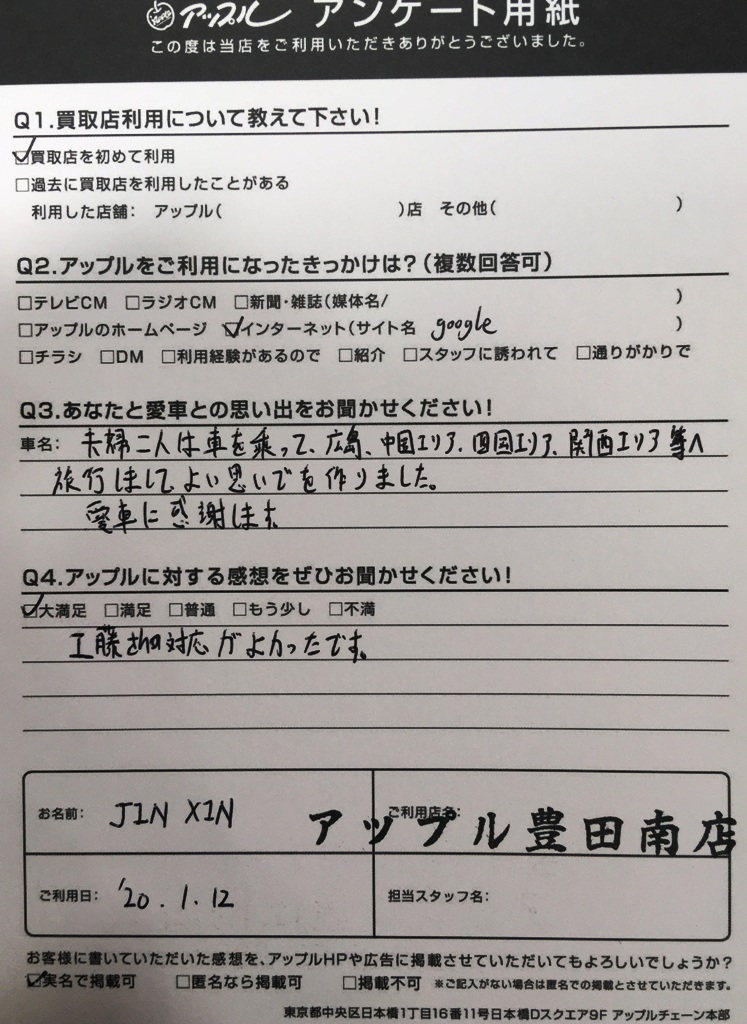 アップル アンケート用紙
この度は当店をご利用いただきありがとうございました。
Q1.買取店利用について教えて下さい!
☑買取店を初めて利用
□過去に買取店を利用したことがある
利用した店舗: アップル( )店 その他( )
Q2.アップルをご利用になったきっかけは?(複数回答可)
□テレビCM □ラジオCM □新聞・雑誌(媒体名/ )
□アップルのホームページ ☑インターネット(サイト名 google )
□チラシ □DM □利用経験があるので □紹介 □スタッフに誘われて □通りがかりで
Q3.あなたと愛車との思い出をお聞かせください!
車名: 夫婦二人は車を乗って、広島、中国エリア、四国エリア、関西エリア等へ
旅行しましてよい思いでを作りました。
愛車に感謝します
Q4.アップルに対する感想をぜひお聞かせください!
☑大満足 □満足 □普通 □もう少し □不満
工藤さんの対応がよかったです。
お名前: JIN XIN
ご利用店名:
アップル豊田南店
ご利用日: '20.1.12
担当スタッフ名:
お客様に書いていただいた感想を、アップルHPや広告に掲載させていただいてもよろしいでしょうか?
☑実名で掲載可 □匿名なら掲載可 □掲載不可 ※ご記入がない場合は匿名での掲載とさせていただきます。
東京都中央区日本橋1丁目16番11号日本橋Dスクエア9F アップルチェーン本部